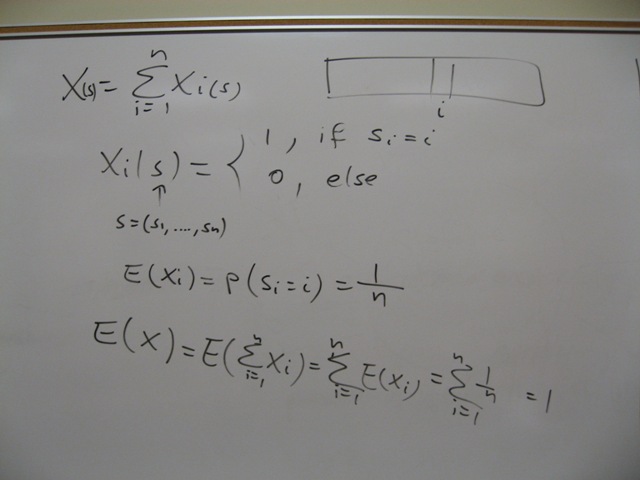 X(s) = ∑_{i=1}^{n} Xi(s)
i
Xi(s) = { 1, if si = i
0, else
↑
s = (s1, ...., sn)
E(Xi) = P(si = i) = 1/n
E(X) = E(∑_{i=1}^{n} Xi) = ∑_{i=1}^{n} E(Xi) = ∑_{i=1}^{n} 1/n = 1